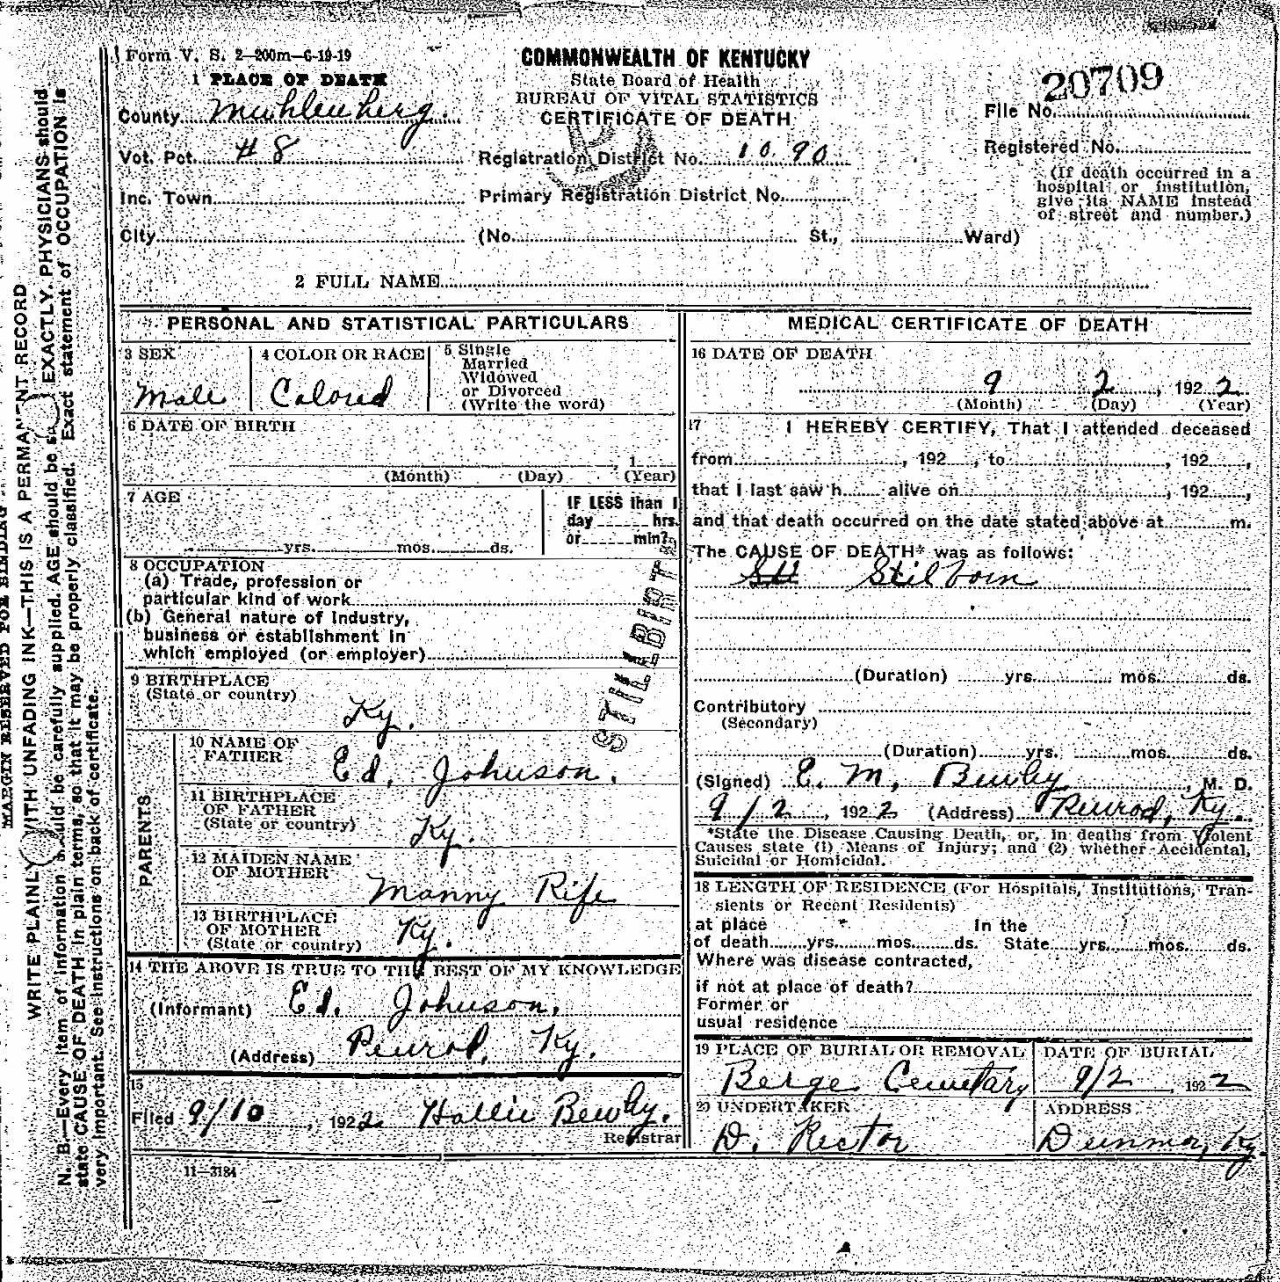 Form V. S. 2—200m—6-19-19
COMMONWEALTH OF KENTUCKY
State Board of Health
BUREAU OF VITAL STATISTICS
CERTIFICATE OF DEATH
20709
File No.
1 PLACE OF DEATH
County Muhlenberg.
Vot. Pct. #8
Registration District No. 1090
Registered No.
(If death occurred in a
hospital or institution,
give its NAME instead
of street and number.)
Inc. Town
Primary Registration District No.
City (No. St., Ward)
2 FULL NAME
PERSONAL AND STATISTICAL PARTICULARS
3 SEX
Male
4 COLOR OR RACE
Colored
5 Single
Married
Widowed
or Divorced
(Write the word)
6 DATE OF BIRTH
, 1
(Month) (Day) (Year)
7 AGE
yrs. mos. ds.
IF LESS than 1
day hrs.
or min?
8 OCCUPATION
(a) Trade, profession or
particular kind of work
(b) General nature of Industry,
business or establishment in
which employed (or employer)
STILLBIRTH
9 BIRTHPLACE
(State or country)
Ky.
PARENTS
10 NAME OF
FATHER
Ed. Johnson.
11 BIRTHPLACE
OF FATHER
(State or country)
Ky.
12 MAIDEN NAME
OF MOTHER
Manny Rife
13 BIRTHPLACE
OF MOTHER
(State or country)
Ky.
14 THE ABOVE IS TRUE TO THE BEST OF MY KNOWLEDGE
(Informant) Ed. Johnson.
(Address) Penrod, Ky.
15
Filed 9/10, 1922 Hallie Bewley.
Registrar
11—3184
MEDICAL CERTIFICATE OF DEATH
16 DATE OF DEATH
9 2, 1922
(Month) (Day) (Year)
17 I HEREBY CERTIFY, That I attended deceased
from , 192 , to , 192 ,
that I last saw h alive on , 192 ,
and that death occurred on the date stated above at m.
The CAUSE OF DEATH* was as follows:
Stilborn
(Duration) yrs. mos. ds.
Contributory
(Secondary)
(Duration) yrs. mos. ds.
(Signed) E. M. Bewley, M. D.
9/2, 1922 (Address) Penrod, Ky.
*State the Disease Causing Death, or, in deaths from Violent
Causes state (1) Means of Injury; and (2) whether Accidental,
Suicidal or Homicidal.
18 LENGTH OF RESIDENCE (For Hospitals, Institutions, Tran-
sients or Recent Residents)
at place In the
of death yrs. mos. ds. State yrs. mos. ds.
Where was disease contracted,
if not at place of death?
Former or
usual residence
19 PLACE OF BURIAL OR REMOVAL
Berge Cemetary
DATE OF BURIAL
9/2, 1922
20 UNDERTAKER
D. Rector
ADDRESS
Dunmor, Ky.
MARGIN RESERVED FOR BINDING
WRITE PLAINLY WITH UNFADING INK—THIS IS A PERMANENT RECORD
N. B.—Every item of information should be carefully supplied. AGE should be EXACTLY. PHYSICIANS should
state CAUSE OF DEATH in plain terms, so that it may be properly classified. Exact statement of OCCUPATION is
very important. See instructions on back of certificate.